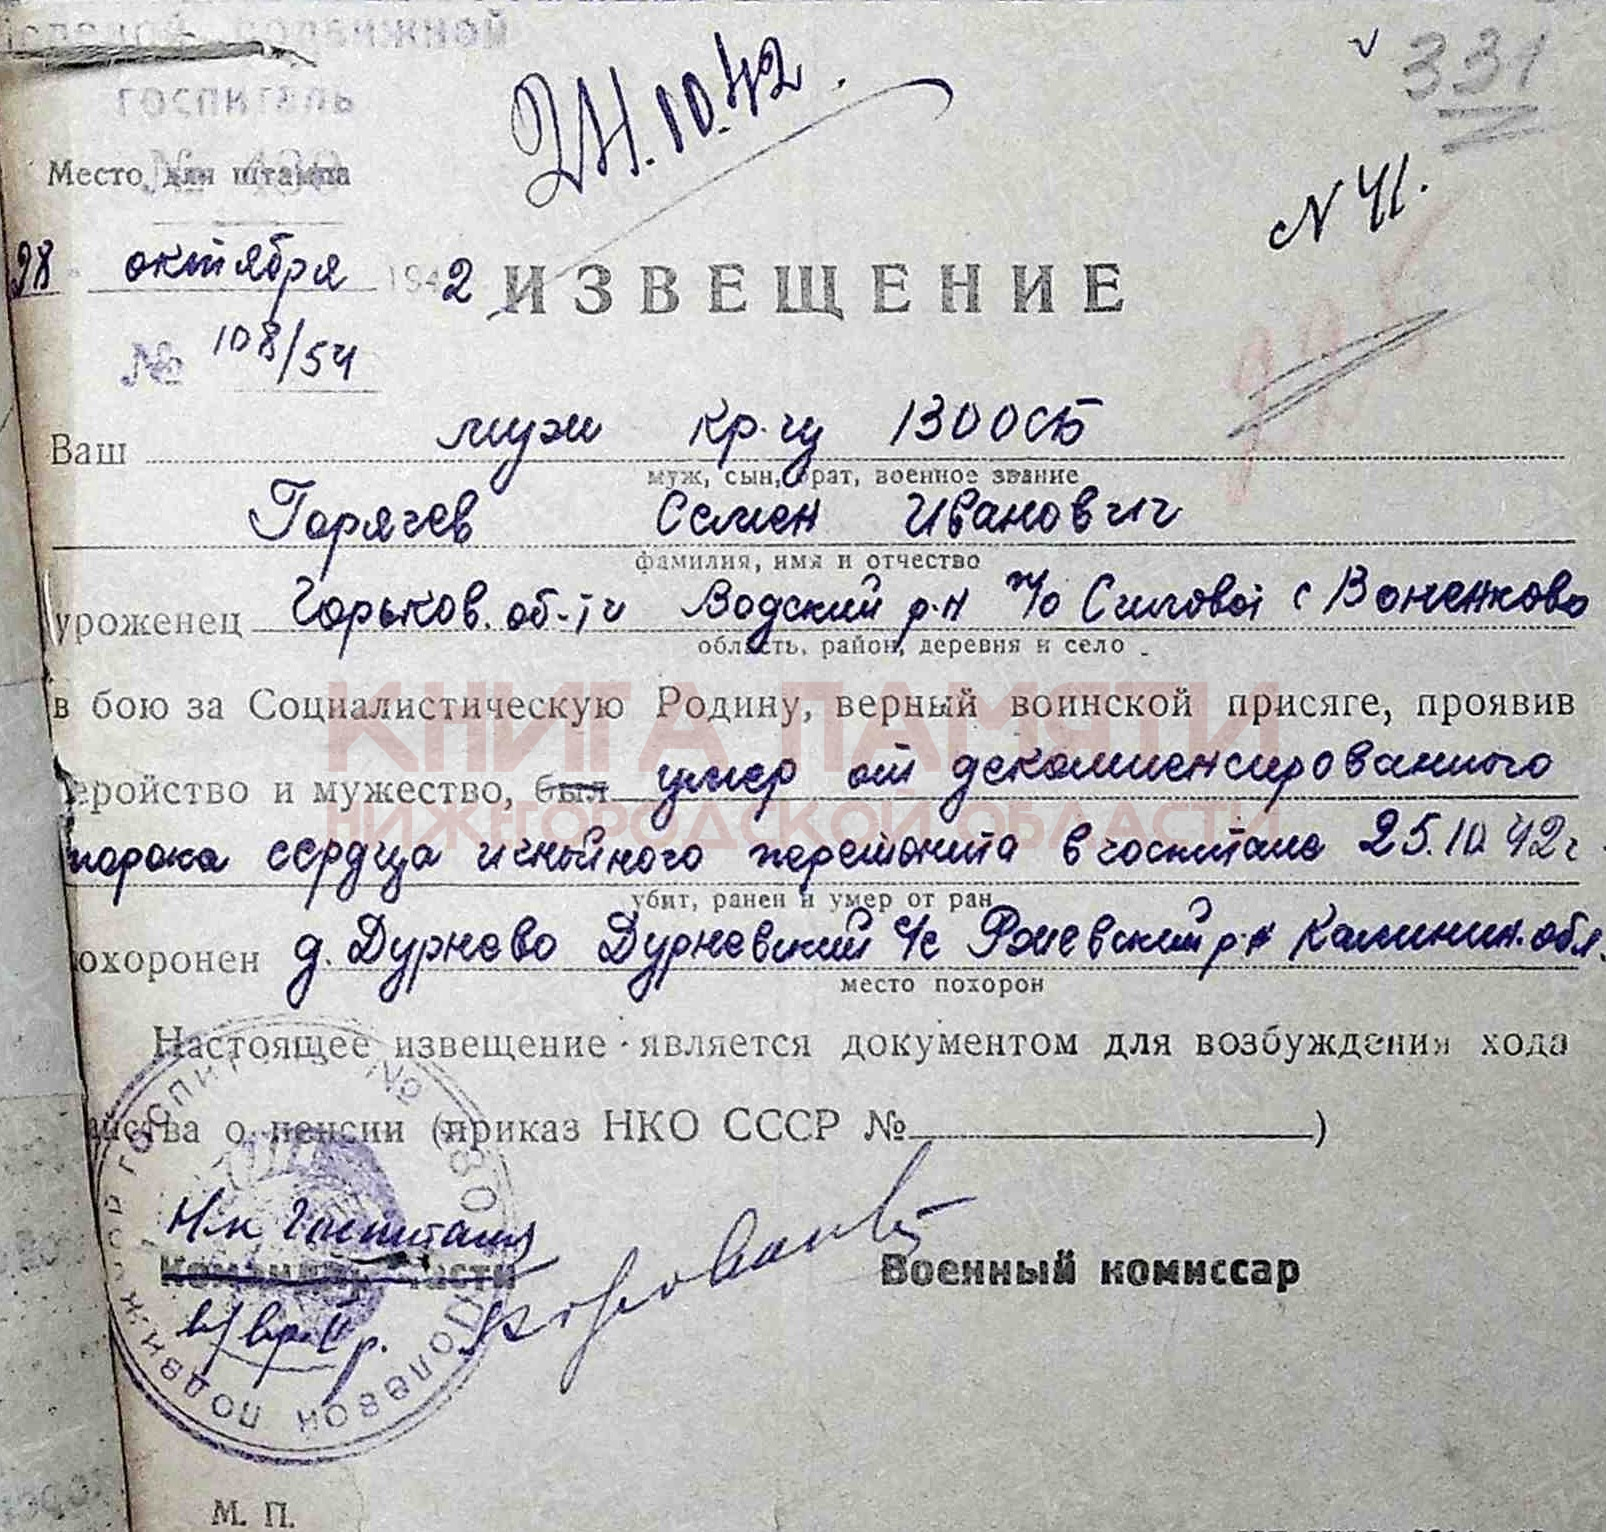 госпиталь
331
24.10.42.
Место для штампа
N 41.
28 октября 1942
ИЗВЕЩЕНИЕ
№ 108/54
Ваш муж кр-цу 130 ОСБ
муж, сын, брат, военное звание
Горячев Семен Иванович
фамилия, имя и отчество
уроженец Горьков. об-ти Вадский р-н
область, район, деревня и село
в бою за Социалистическую Родину, верный воинской присяге, проявив
еройство и мужество, был умер от декомпенсированного
порока сердца и гнойного перетонита в госпитале 25.10.42г.
убит, ранен и умер от ран
охоронен д. Дурнево Дурневский с/с Ржевский р-н Калинин. обл.
место похорон
Настоящее извещение является документом для возбуждения хода
айства о пенсии (приказ НКО СССР № )
Н-к Госпиталя
Командир части
Военный комиссар
ПОЛЕВОЙ ПОДВИЖНОЙ ГОСПИТАЛЬ №
М. П.
КНИГА ПАМЯТИ
НИЖЕГОРОДСКОЙ ОБЛАСТИ